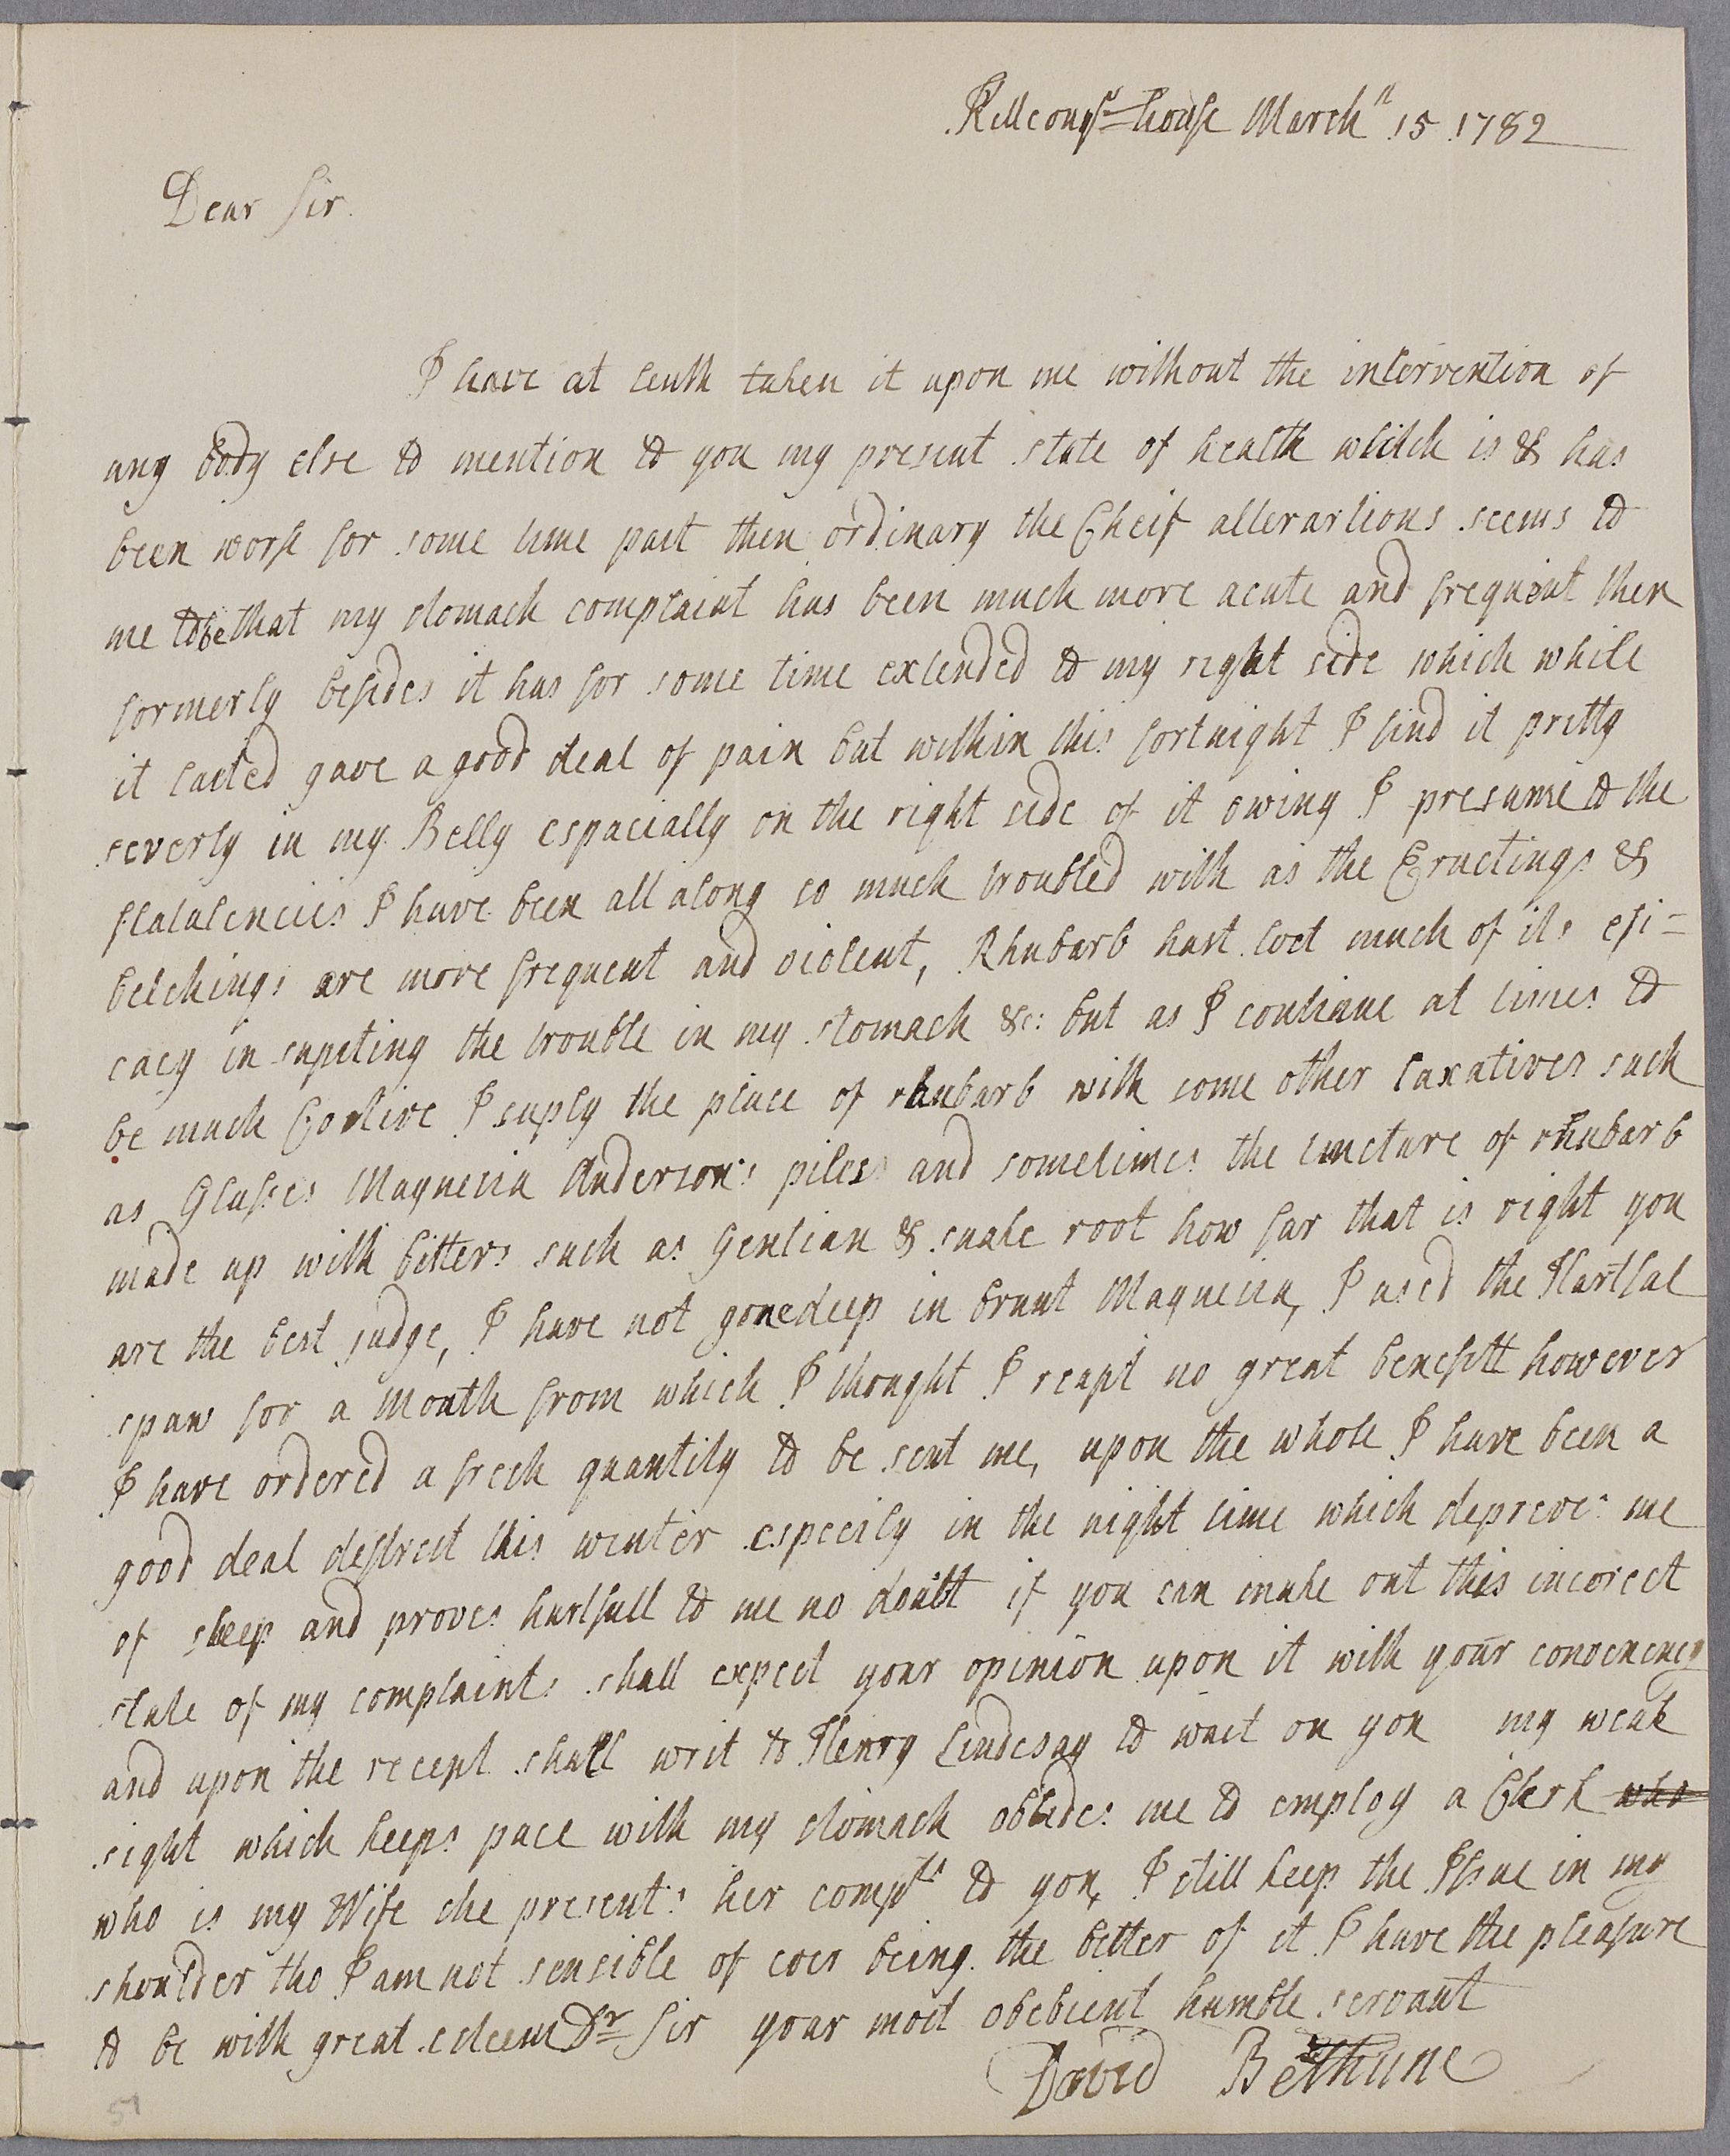 Killconqr house March 15 1782
Dear Sir.
I have at lenth taken it upon me without the intervention of
any body else to mention to you my present state of health which is & has
been worse for some time past then ordinary the Cheif allerartions seems to
me to be that my stomach complaint has been much more acute and frequent then
formerly besides it has for some time extended to my right side which while
it lasted gave a good deal of pain but within this fortnight I find it pritty
severly in my Belly espacially on the right side of it owing I presume to the
flatulencies I have been all along so much troubled with as the Eructings &
belchings are more frequent and violent, Rhubarb hast lost much of its efi=
cacy in supeting the trouble in my stomach &c: but as I continue at times to
be much Costive I suply the place of rhubarb with some other laxatives such
as Glasses Magnesia Anderson's piles and sometimes the tincture of rhubarb
made up with bitters such as Gentian & snake root how far that is right you
are the best judge, I have not gone deep in brunt Magnesia, I used the Hartfal
spaw for a Month from which I thought I reapt no great benefitt however
I have ordered a fresh quantity to be sent me, upon the whole I have been a
good deal distrest this winter especily in the night time which depreves me
of sleep and proves hurtfull to me no doubt if you can make out this incorect
state of my complaints shall expect your opinion upon it with your convenency
and upon the recept shall writ to Henry Lindesay to wait on you my weak
sight which keeps pace with my stomach oblides me to employ a Clerk who
who is my Wife she presents her compts to you, I still keep the Issue in my
shoulder tho I am not sensible of ever being the better of it I have the pleasure
to be with great esteem Dr Sir your most obebient humble servant
David Bethune
51